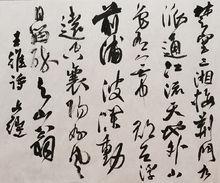 楚塞三湘接荆门九
派通江流天地外山
色有无中郡邑浮
前浦波澜動
遠空襄陽好風
日留醉与山翁
王维诗